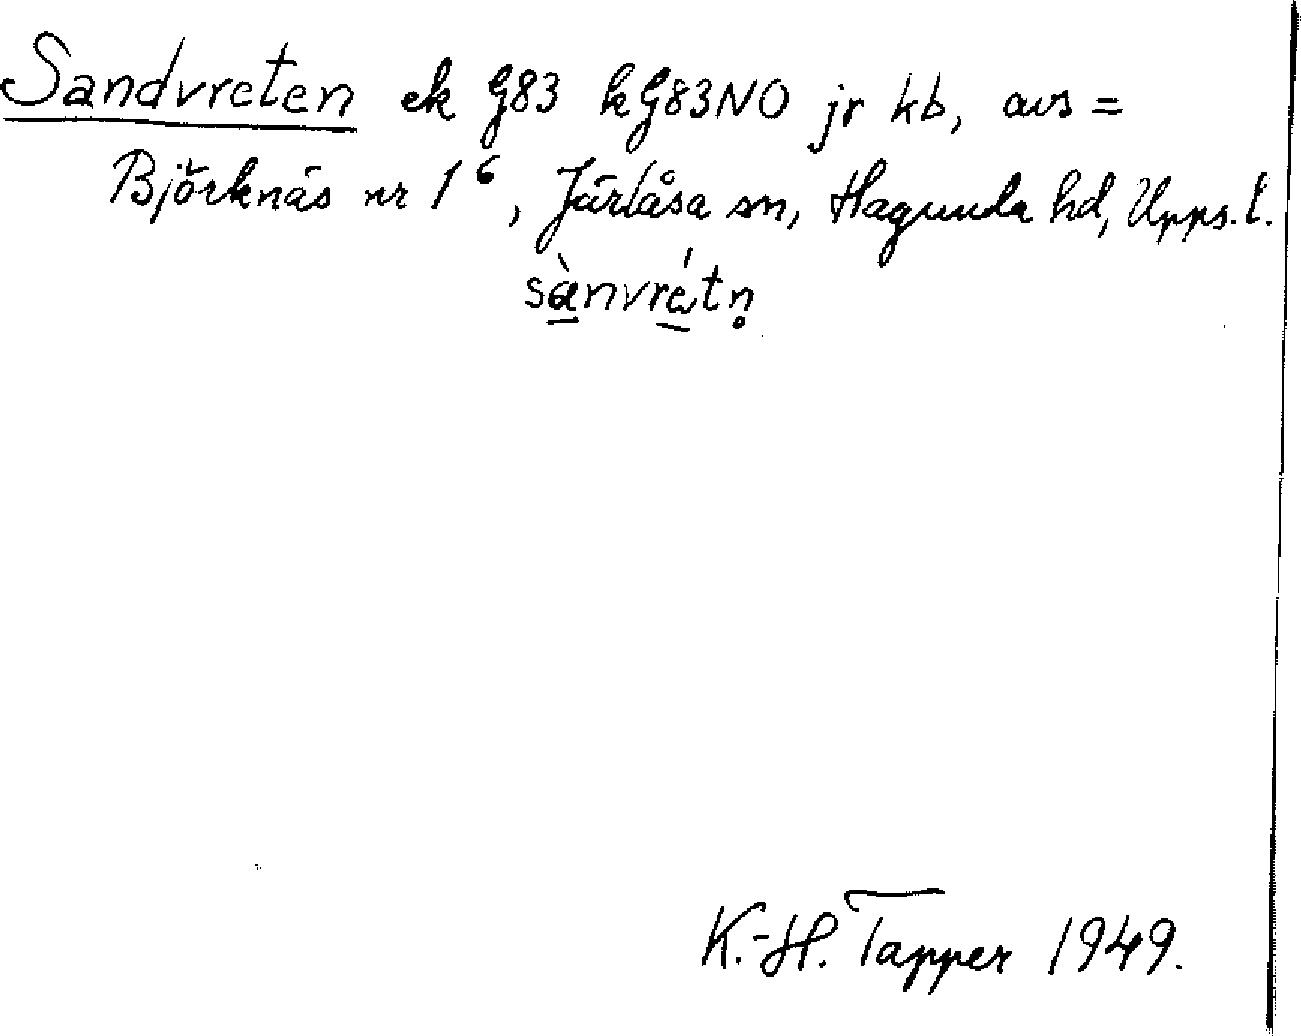 Sandvreten ek G83 kG83NO jr kb, avs =
Björknäs nr 1⁶, Järlåsa sn, Hagunda hd, Upps. l.
sànvrétn̥
K.-H. Tapper 1949.